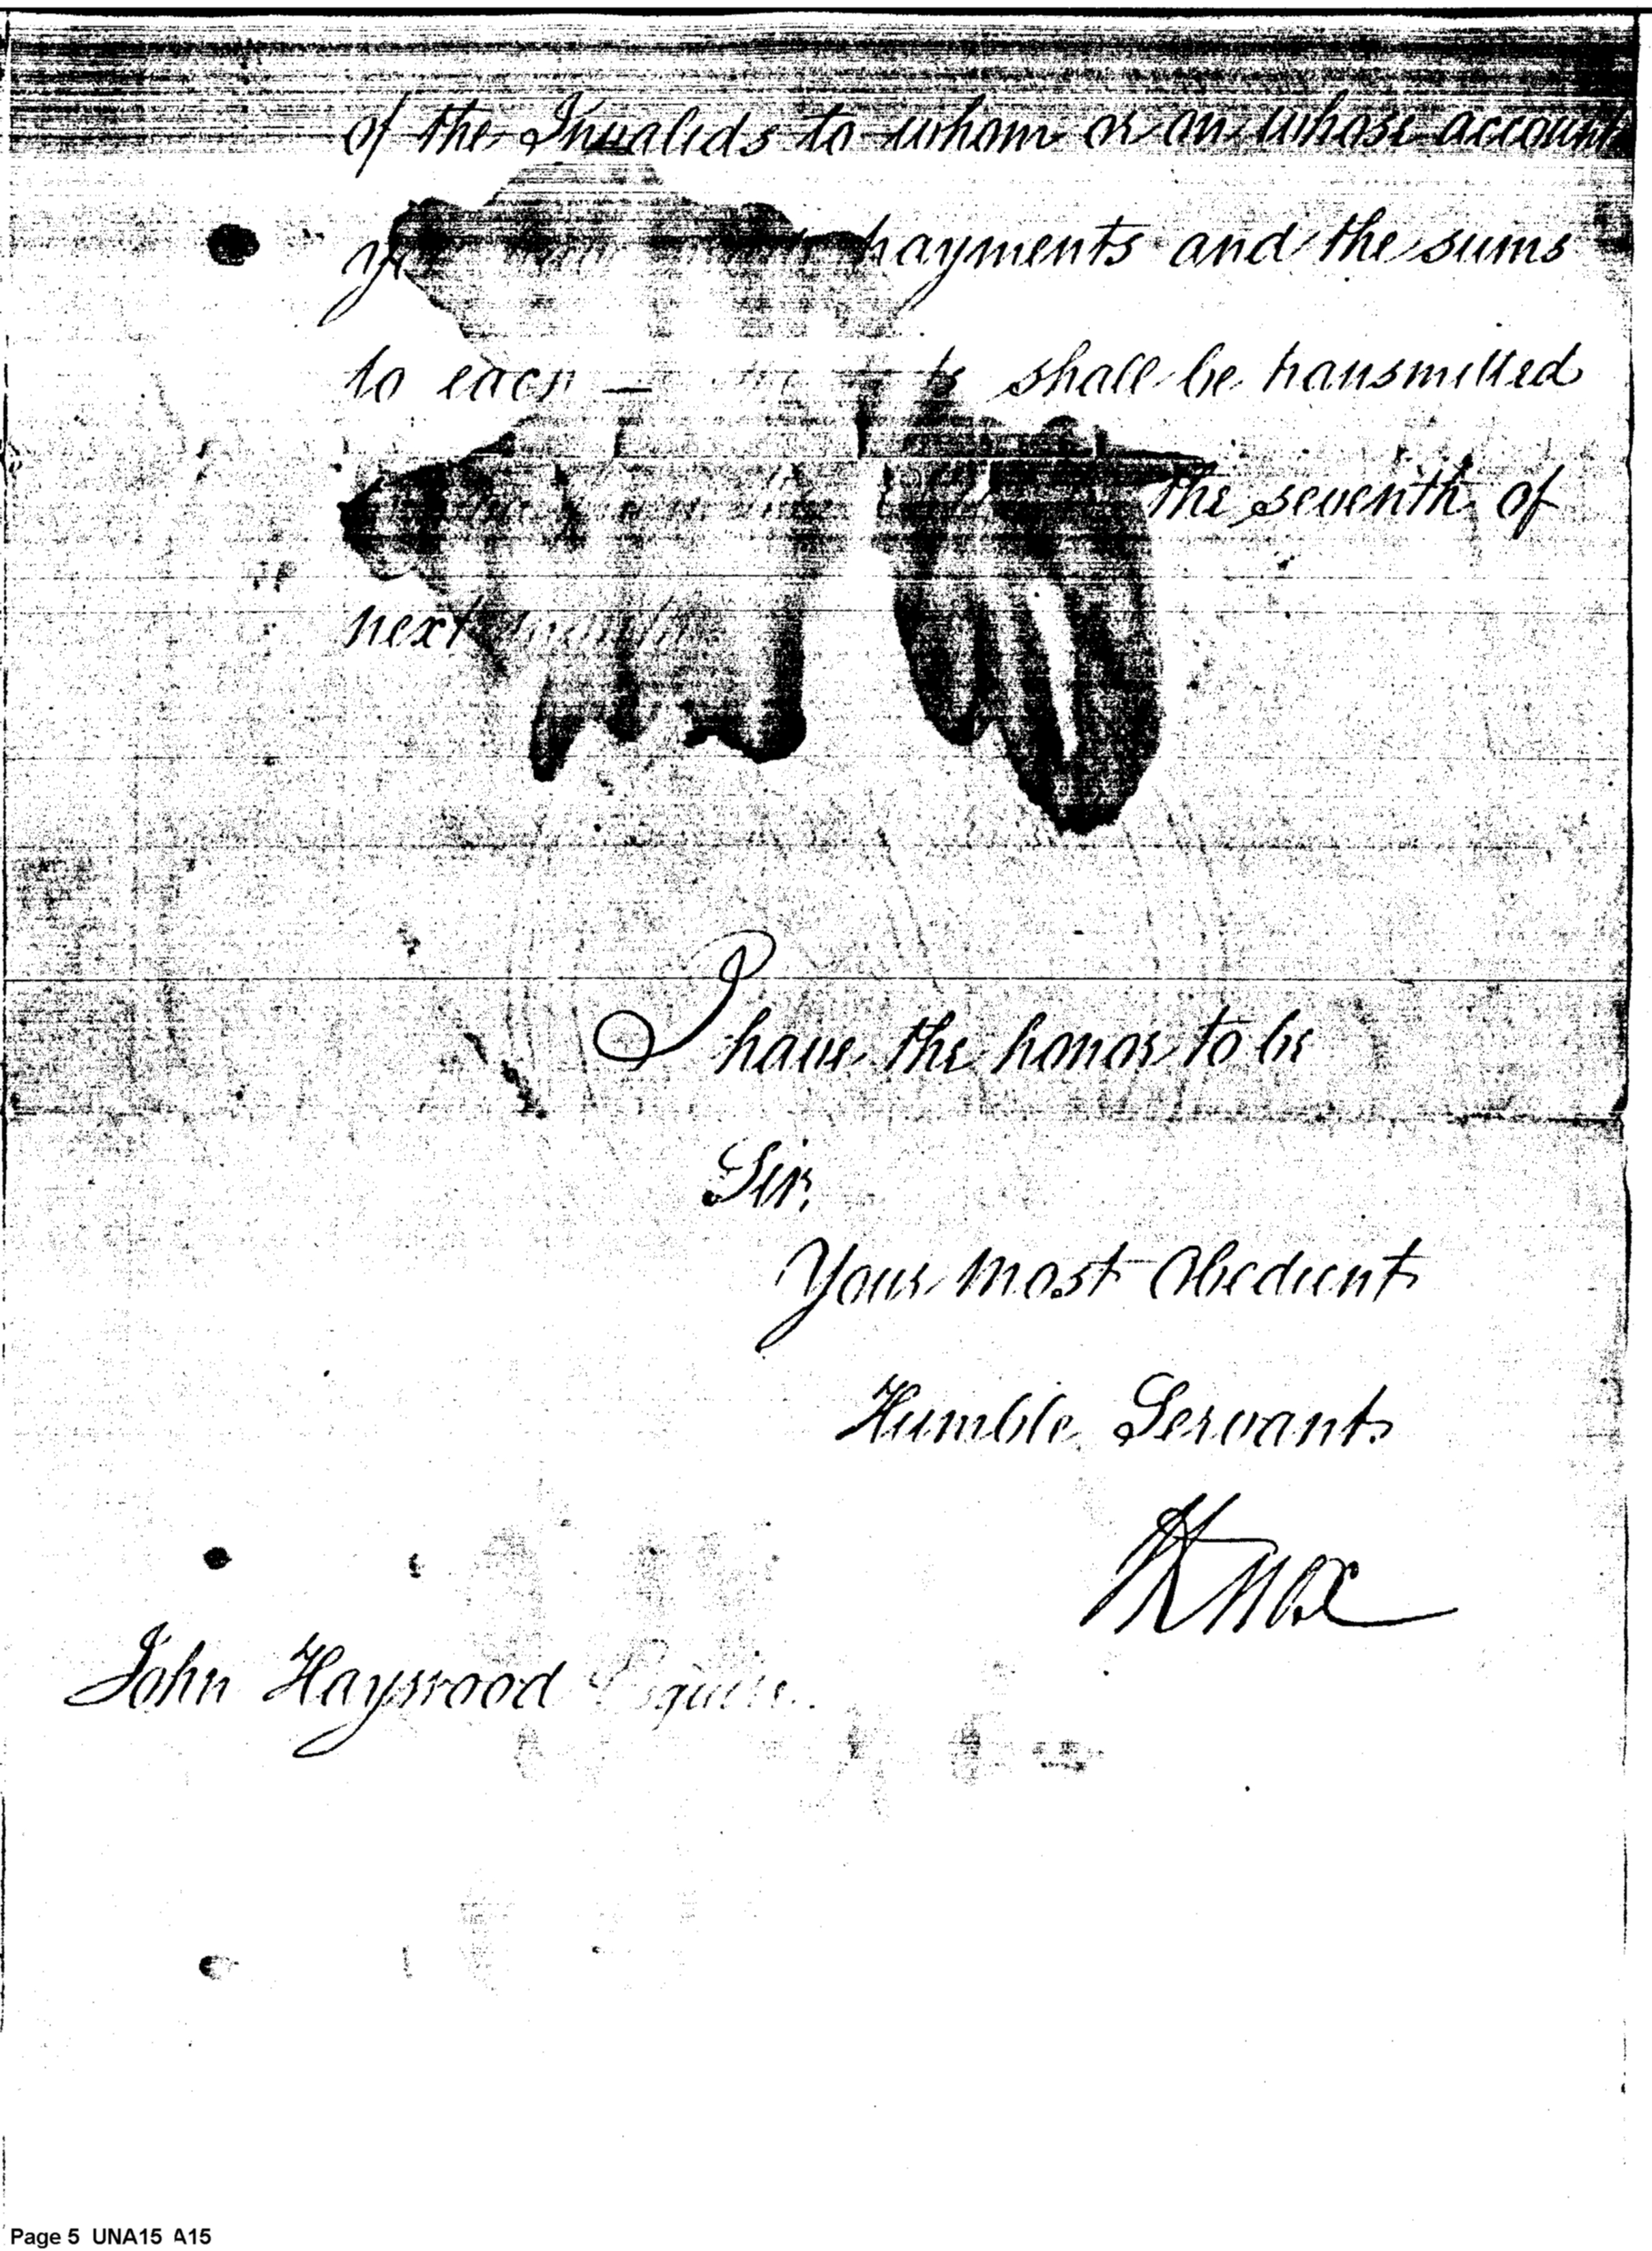 of the Invalids to whom or on whose account
payments and the sums
to each — shall be transmitted
the seventh of
next month
I have the honor to be
Sir,
Your most Obedient
Humble Servant
HKnox
John Haywood Esquire.
Page 5 UNA15 A15